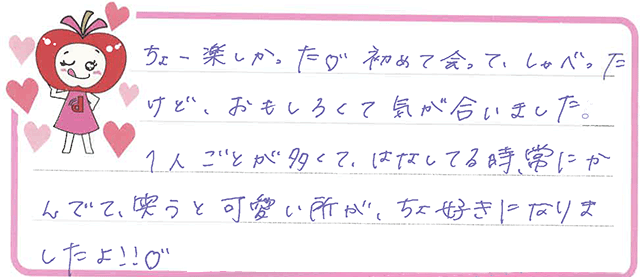 ちょー楽しかったღ 初めて会って、しゃべった
けど、おもしろくて気が合いました。
1人ごとが多くて、はなしてる時、常にか
んでて、笑うと可愛い所が、ちょ好きになりま
したよ!!ღ